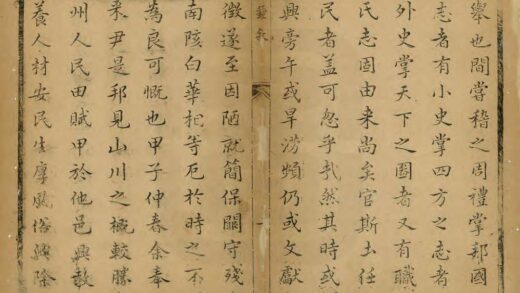 舉也間嘗稽之周禮掌邦國
志者有小史掌四方之志者
外史掌天下之圖者又有職
氏志固由來尚矣官斯土任
民者盖可忽乎哉然其時或
興旁午或旱澇頻仍或文獻
徵遂至因陋就簡保關守殘
南陔白華相等厄於時之不
為良可慨也甲子仲春余奉
來尹是邦見山川之概較勝
州人民田賦甲於他邑興教
養人材安民生厚風俗興除